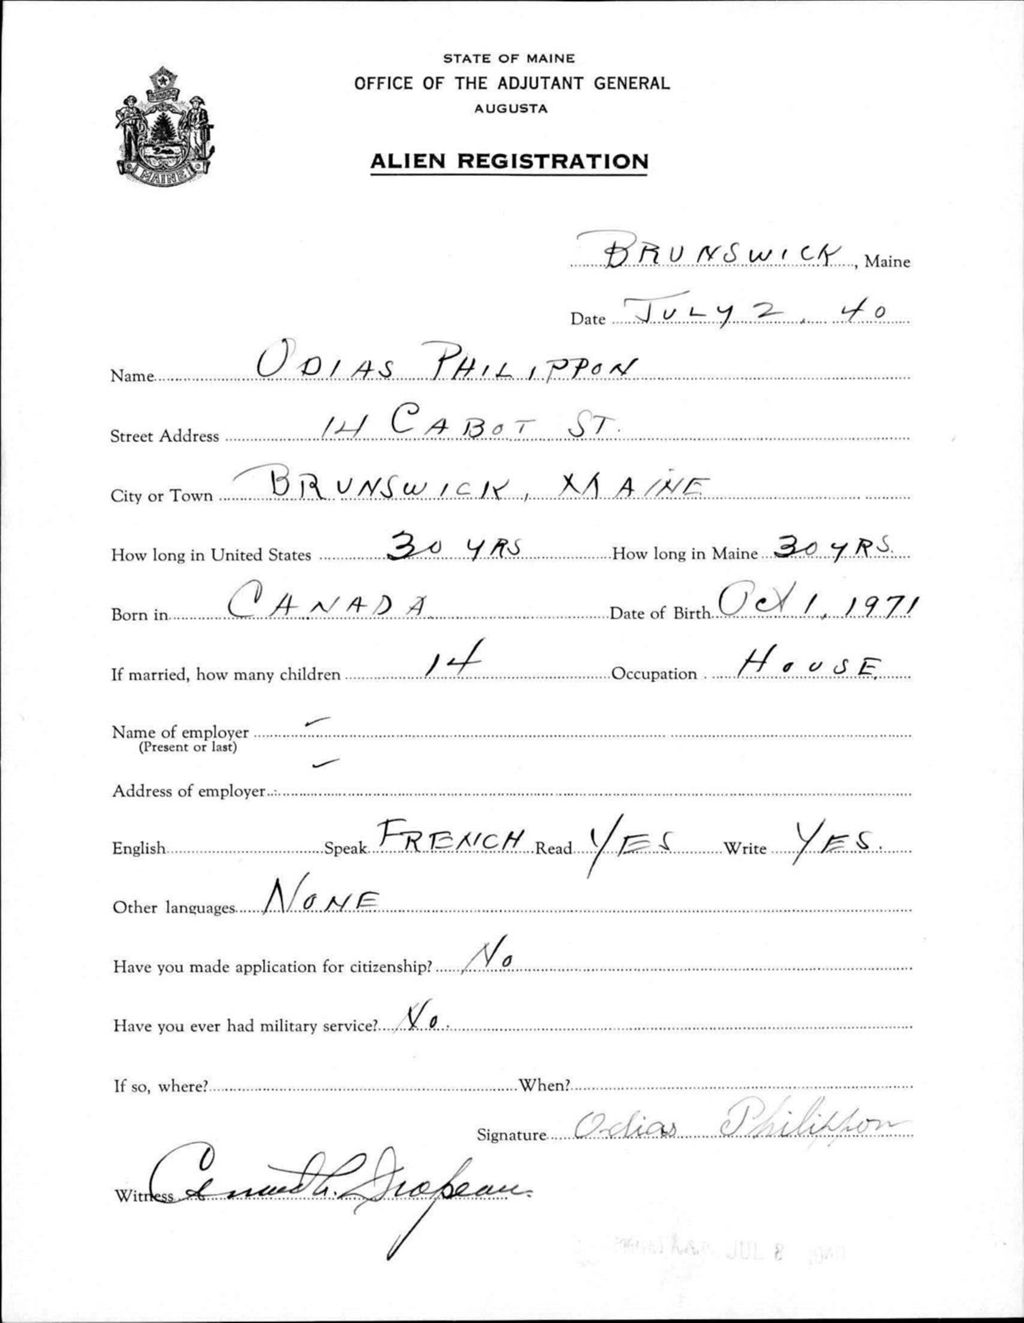 STATE OF MAINE
OFFICE OF THE ADJUTANT GENERAL
AUGUSTA
ALIEN REGISTRATION
MAINE
BRUNSWICK, Maine
Date JULY 2, 40
Name ODIAS PHILIPPON
Street Address 14 CABOT ST.
City or Town BRUNSWICK, MAINE
How long in United States 30 YRS How long in Maine 30 YRS.
Born in CANADA Date of Birth Oct 1, 1971
If married, how many children 14 Occupation HOUSE
Name of employer –
(Present or last)
Address of employer –
English Speak FRENCH Read YES Write YES.
Other languages NONE
Have you made application for citizenship? No
Have you ever had military service? No.
If so, where? When?
Signature Odias Philippon
Witness Drapeau.
JUL 8